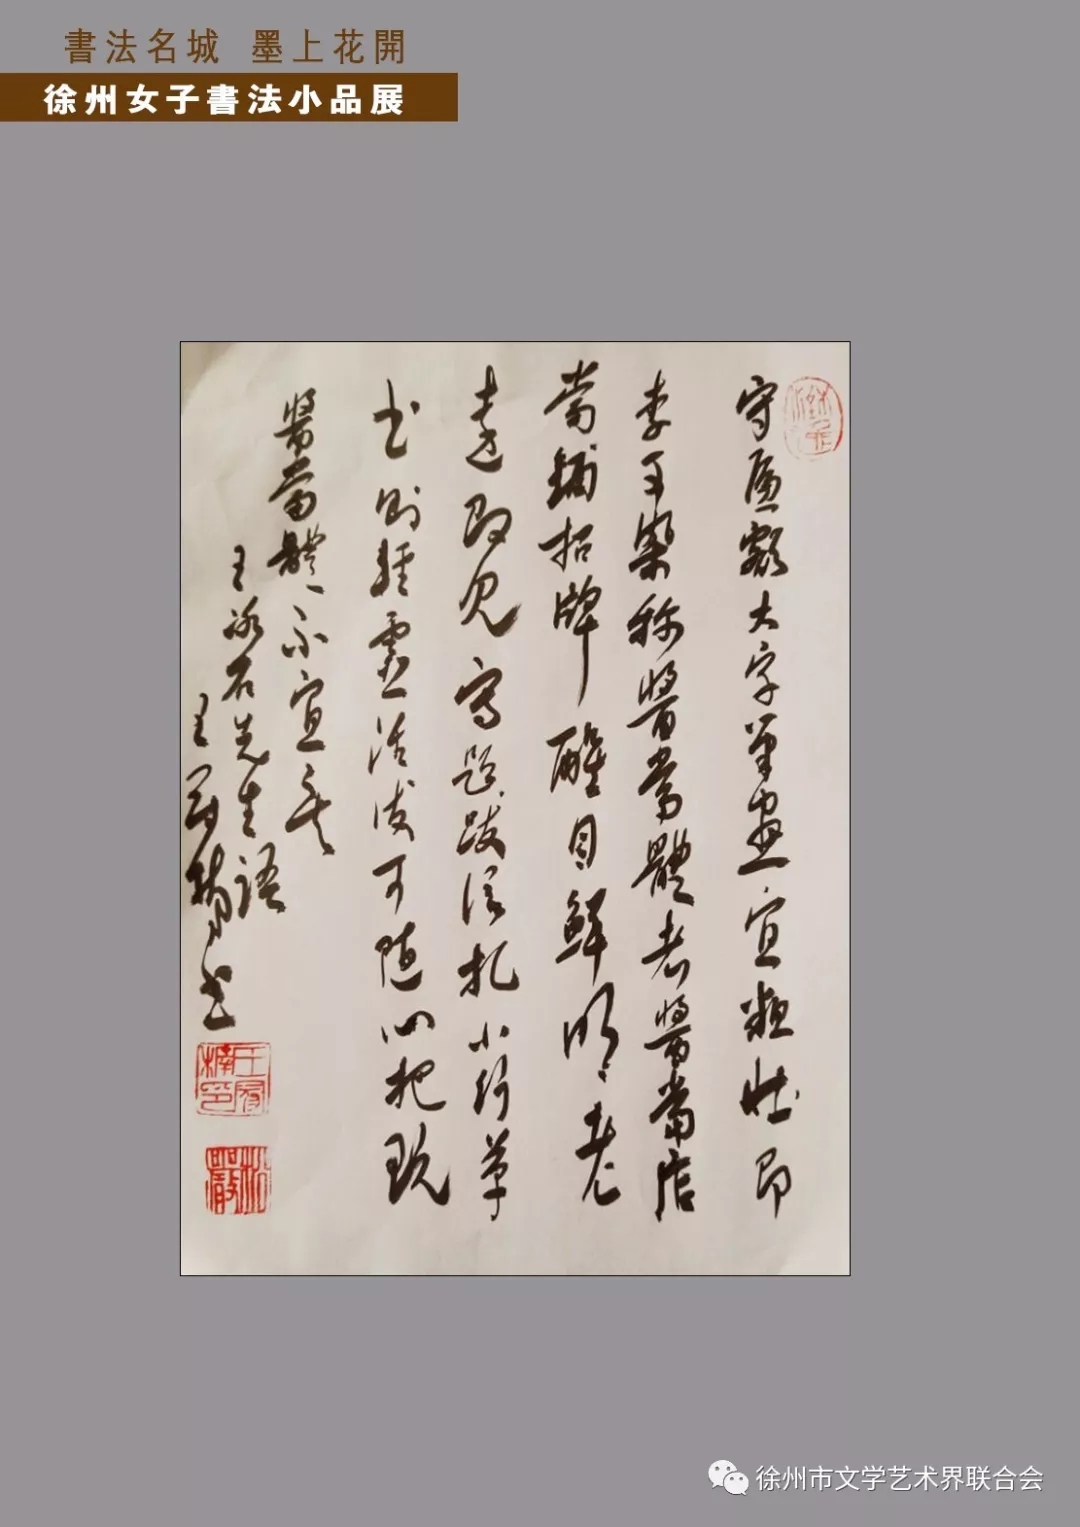 書法名城 墨上花開
徐州女子書法小品展
匾額大字筆畫宜粗壯即
李可染稱醬當體者醬當店
當鋪招牌醒目鮮明老
遠即見寫題跋信札小行草
书則輕靈活潑可隨心把玩
醬當體不宜矣
王冰石先生語
王楠书
徐州市文学艺术界联合会